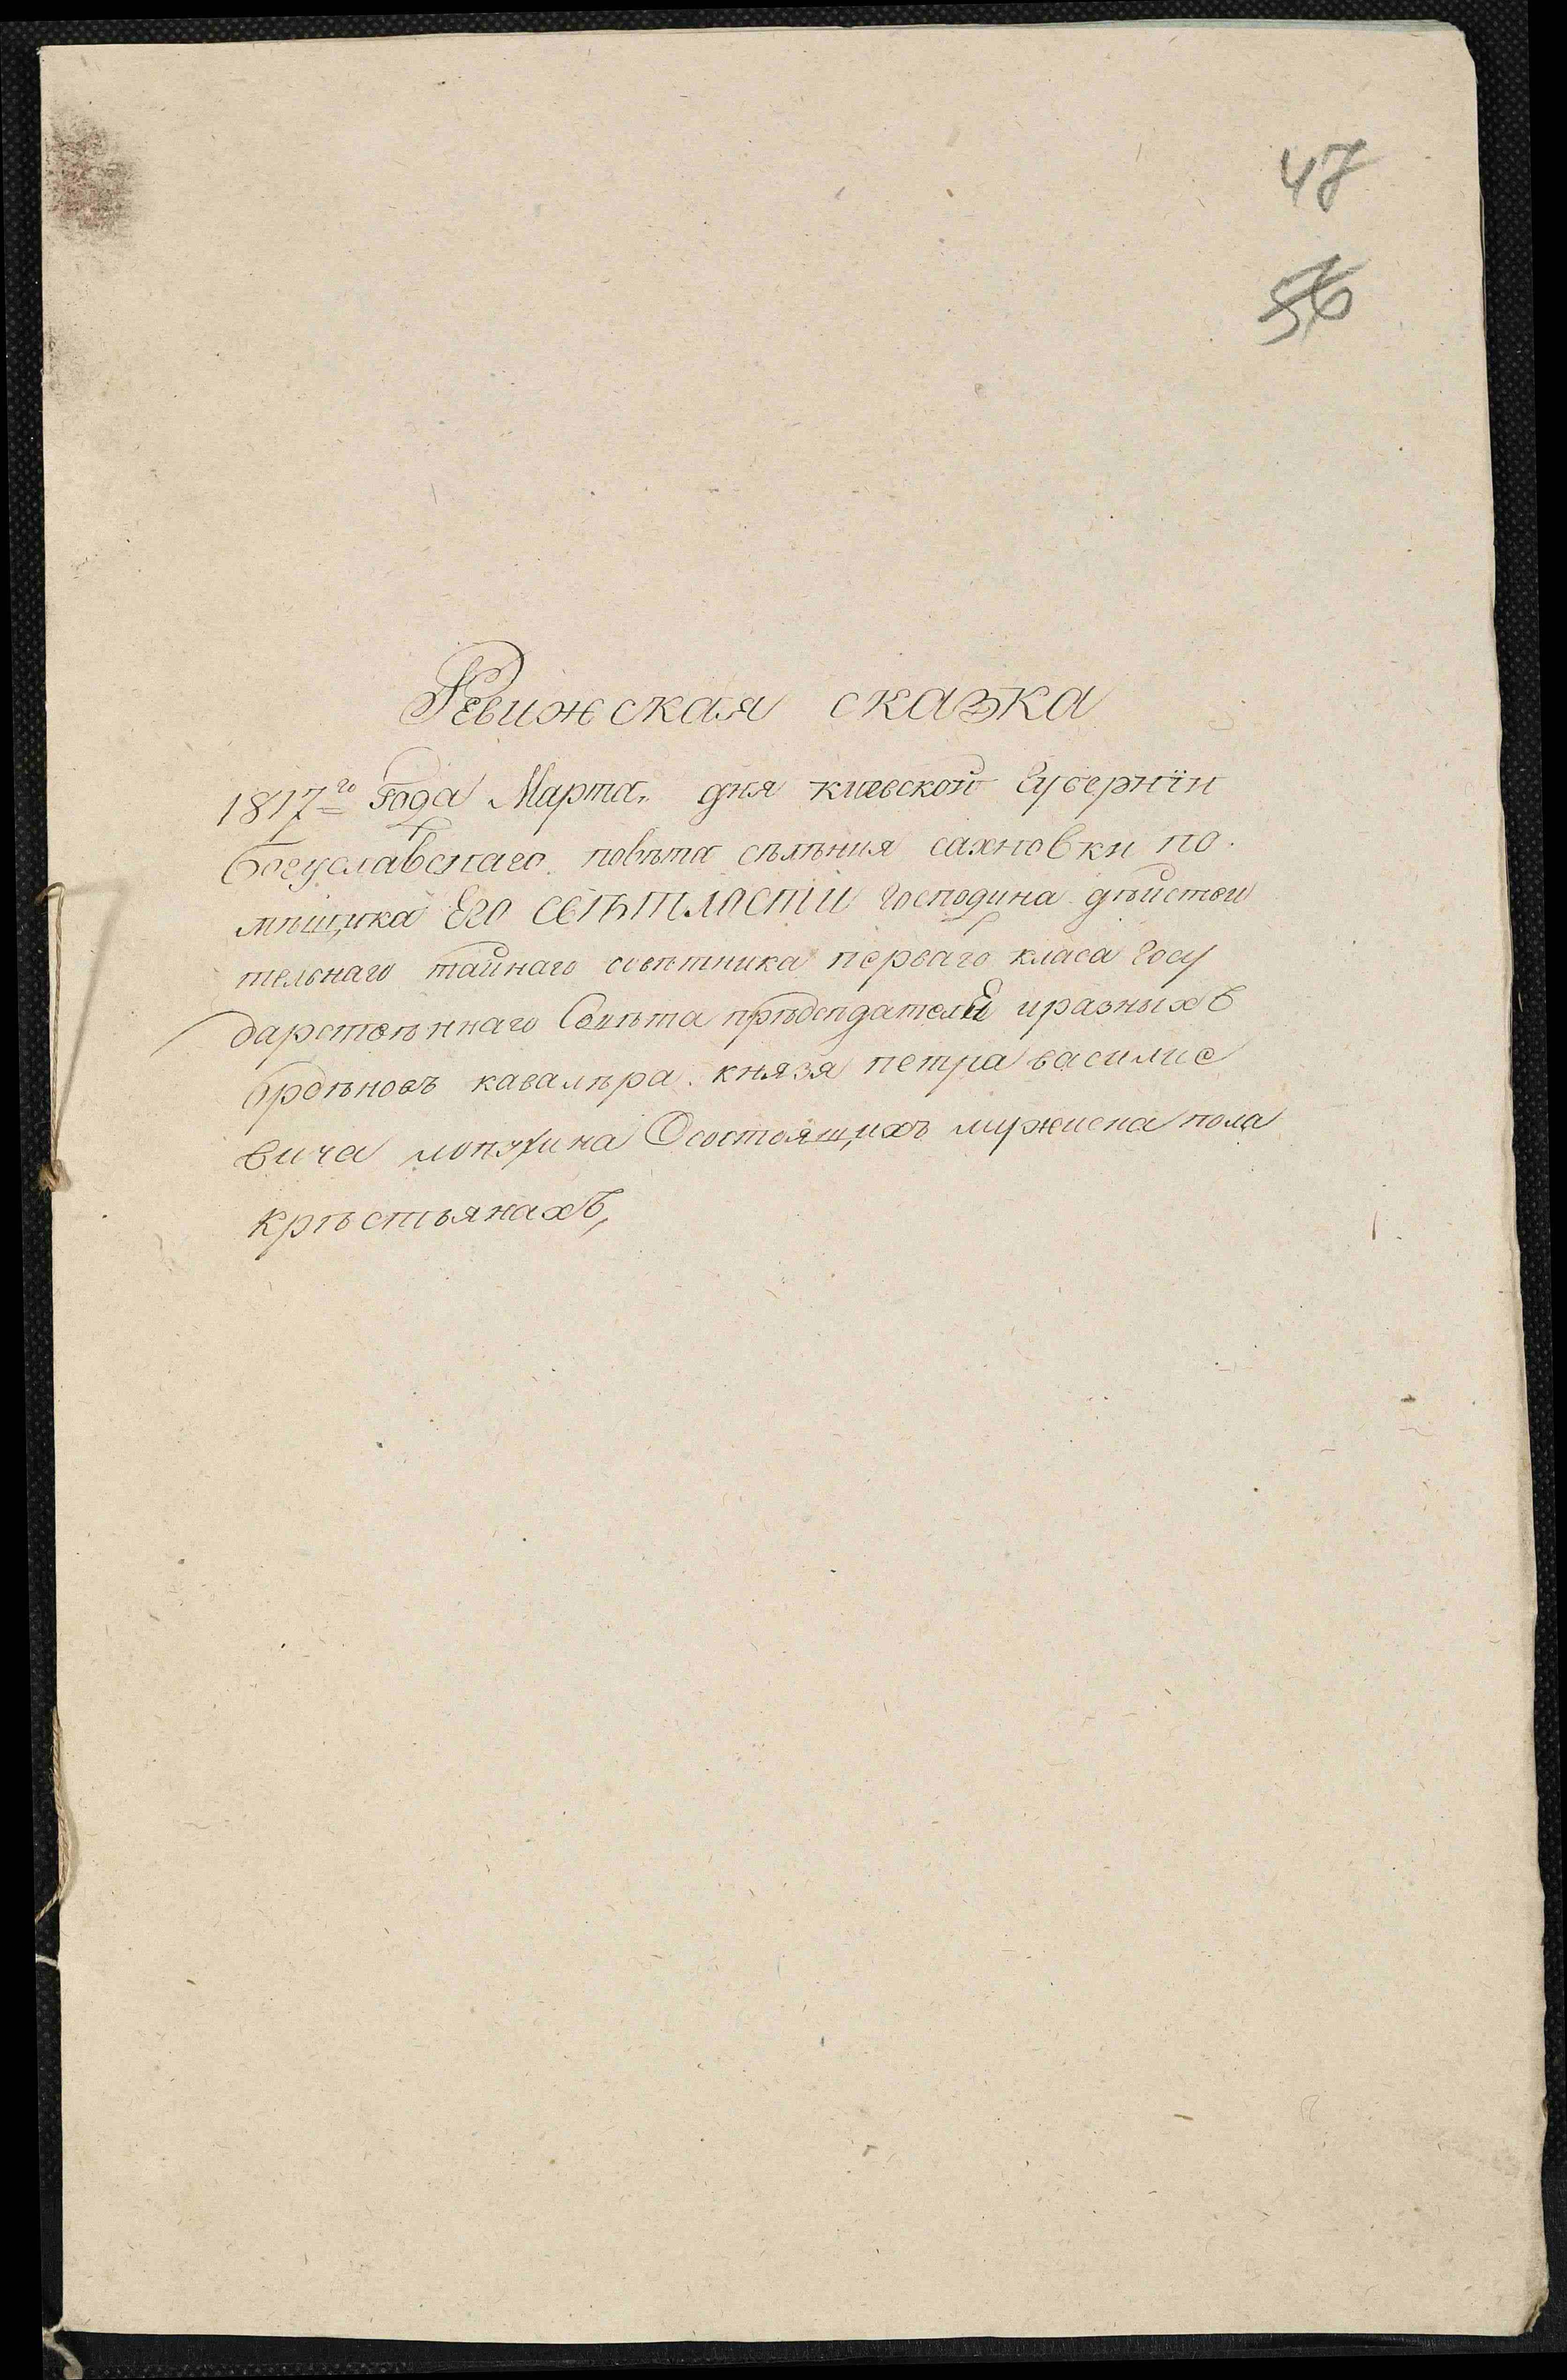 47
56
Ревижская сказка
1817го Года Марта„ дня киевской Губернїи
Богуславскаго повѣта сѣлѣния сахновки по.
мѣщика Его Свѣтлости Господина дѣйстви
тельнаго тайнаго совѣтника перваго класа Госу
дарствѣннаго Совѣта прѣдсѣдателя иразныхъ
Ордѣновъ кавалѣра князя петра василие
вича лопухина Осостоящихъ муржиска пола
крѣстьянахъ,